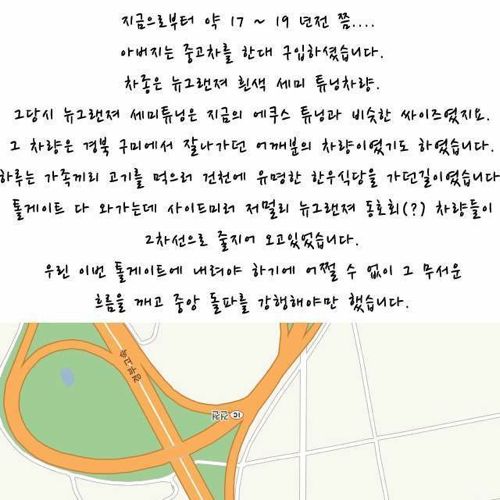 지금으로부터 약 17 ~ 19 년전 쯤....
아버지는 중고차를 한대 구입하셨습니다.
차종은 뉴그랜져 흰색 세미 튜닝차량.
그당시 뉴그랜져 세미튜닝은 지금의 에쿠스 튜닝과 비슷한 싸이즈였지요.
그 차량은 경북 구미에서 잘나가던 어깨분의 차량이였기도 하였습니다.
하루는 가족끼리 고기를 먹으러 건천에 유명한 한우식당을 가던길이였습니다
톨게이트 다 와가는데 사이드미러 저멀리 뉴그랜져 동호회(?) 차량들이
2차선으로 줄지어 오고있었습니다.
우린 이번 톨게이트에 내려야 하기에 어쩔 수 없이 그 무서운
흐름을 깨고 중앙 돌파를 강행해야만 했습니다.